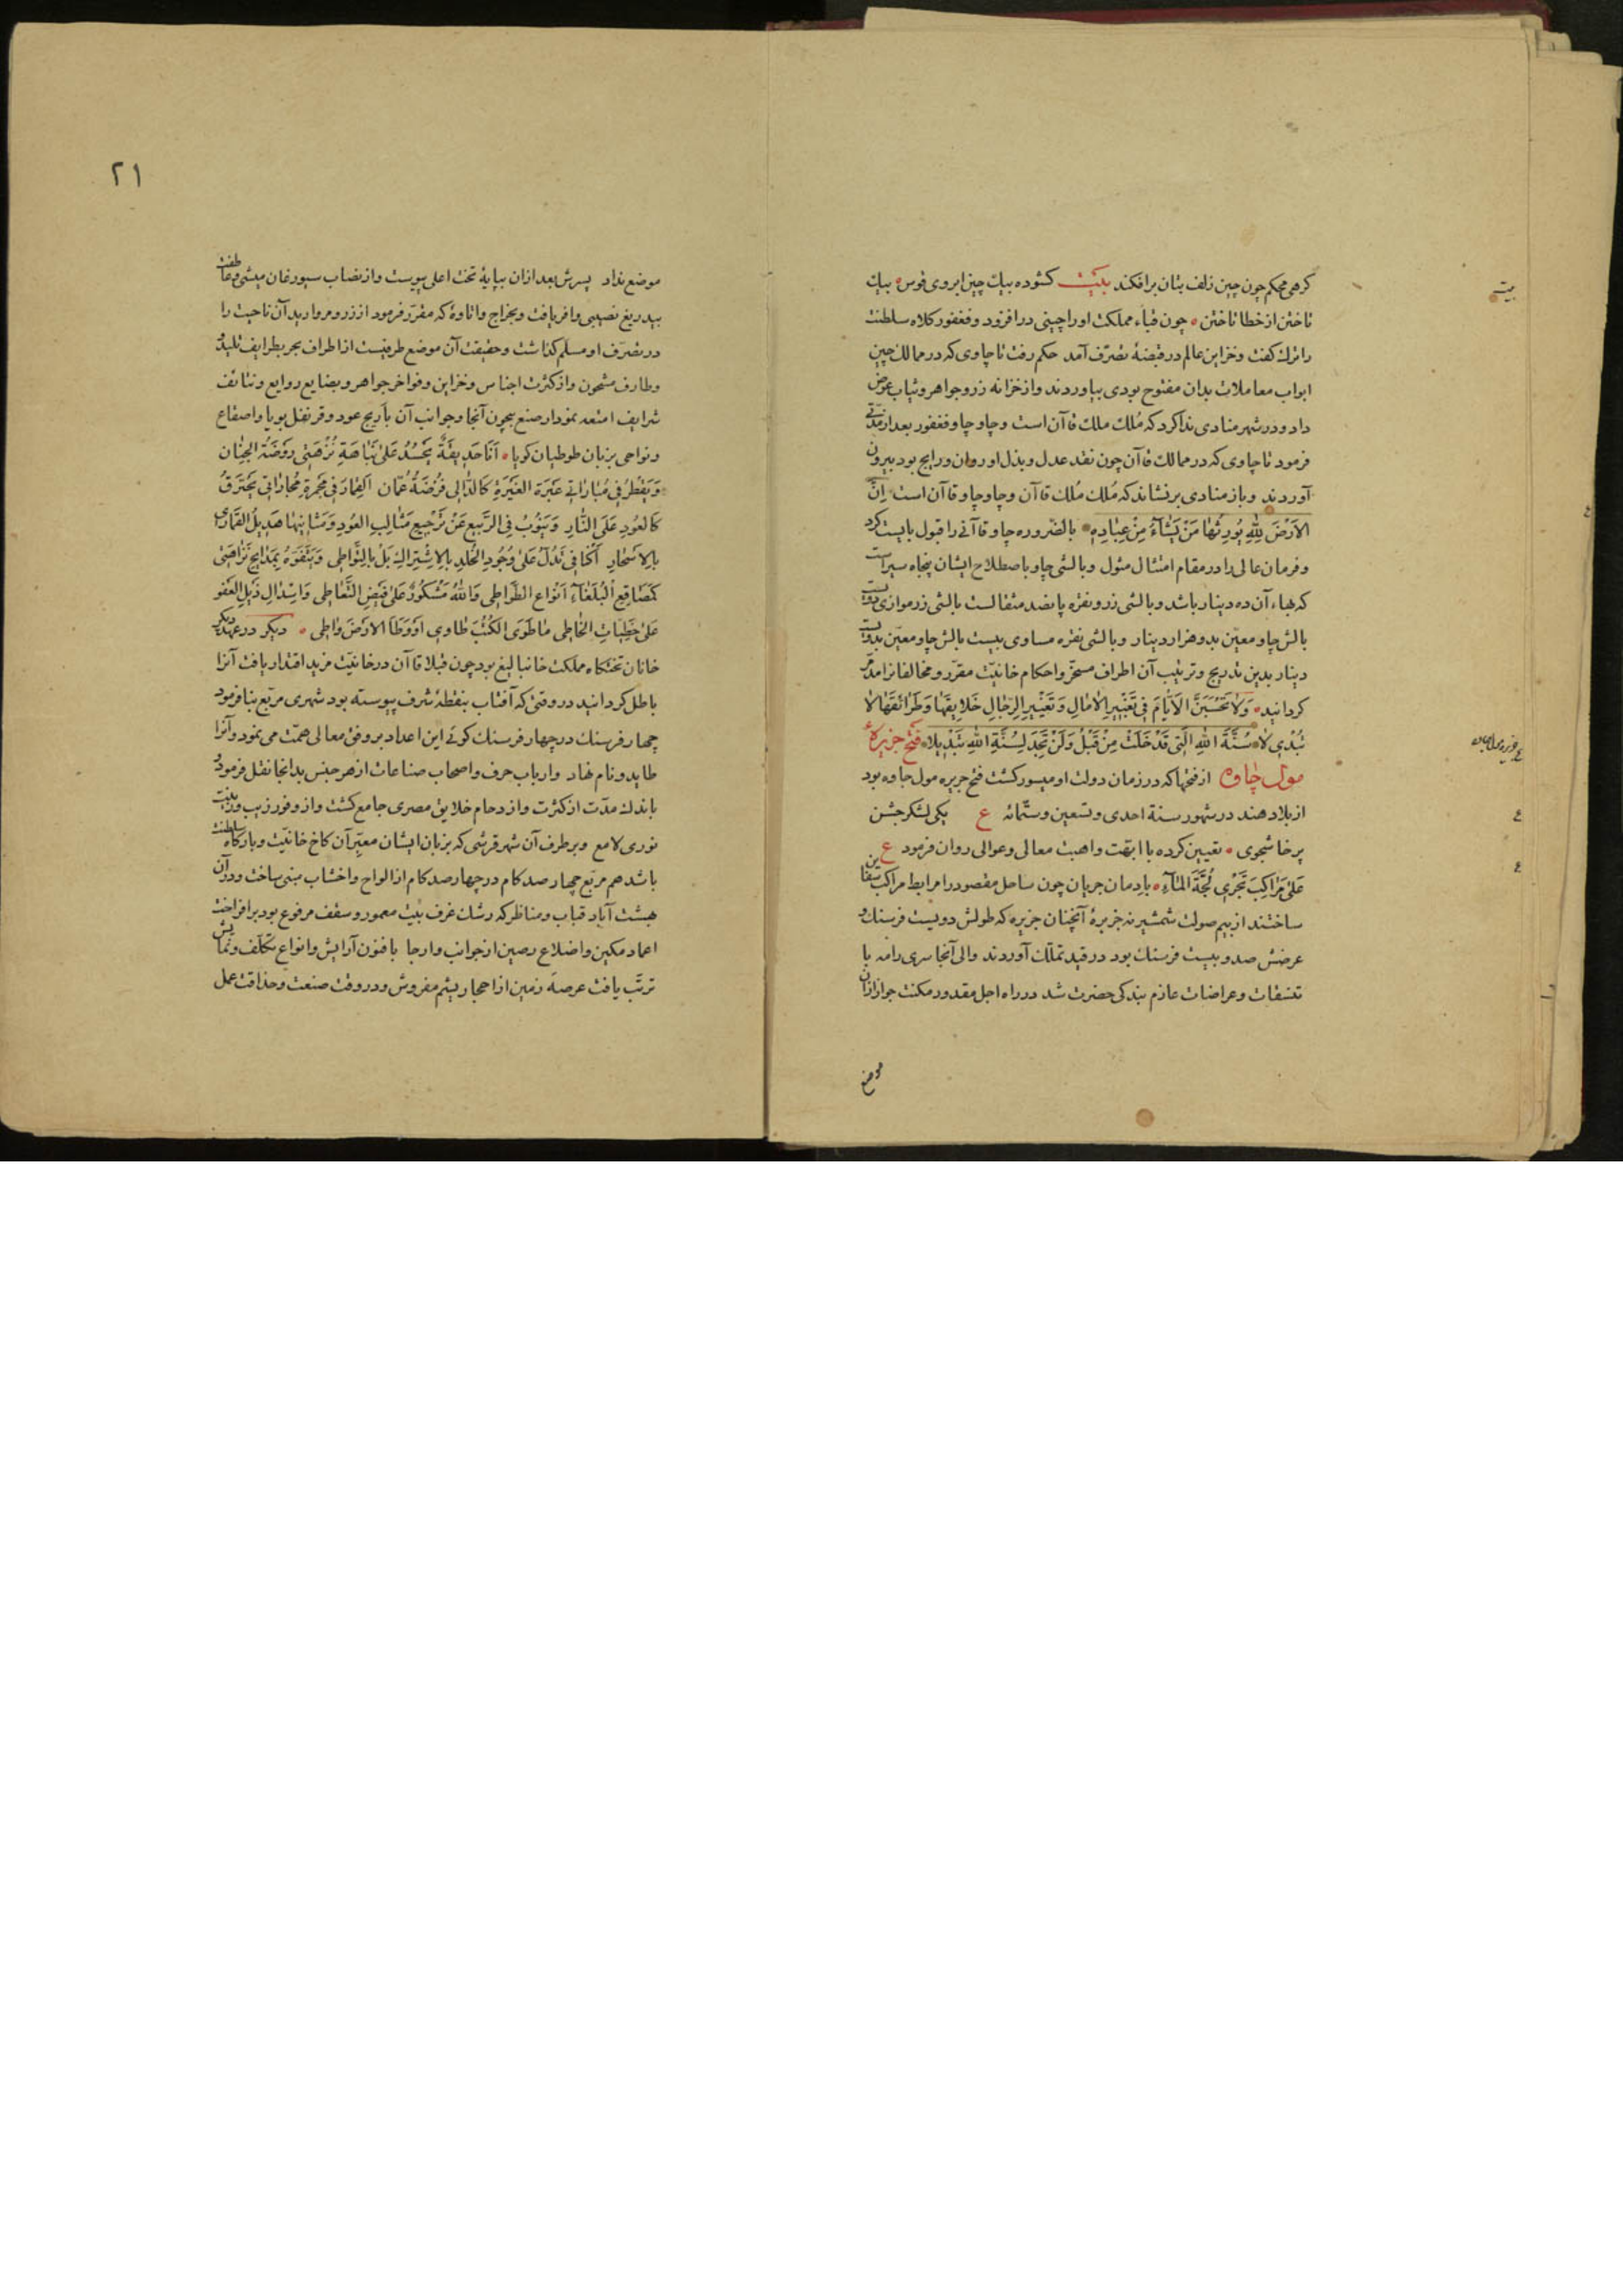 کرهی محکم چون چین زلف بتان برافکند بیت کشوده بیک چین ابروی قوس بیک
تاختن از خطا تا ختن چون قباء مملکت او را چینی درافزود و فغفور کلاه سلطنت
را ترک کفت و خزاین عالم در قبضهٔ تصرّف آمد حکم رفت تا چاوی که در ممالک چین
ابواب معاملات بدان مفتوح بودی بیاوردند و از خزانه زر و جواهر و ثیاب عوض
داد و در شهر منادی ندا کرد که مُلک ملک قاآن است و چاو چاو فغفور بعد از مدّتی
فرمود تا چاوی که در ممالک قاآن چون نقد عدل و بذل او روان و رایج بود بیرون
آوردند و باز منادی برنشاند که مُلک مُلک قاآن و چاو چاو قاآن است اِنَّ
الاَرْضَ لِلّٰهِ یُورِثُهٰا مَنْ یَشٰآءُ مِنْ عِبٰادِهِ بالضّروره چاو قاآنی را قبول بایست کرد
و فرمان عالی را در مقام امتثال مثول و بالشی چاو باصطلاح ایشان پنجاه سیر است
که بهاء آن ده دینار باشد و بالشی زر و نقره پانصد مثقالست بالشی زر موازی دویست
بالش چاو معیّن بدو هزار دینار و بالشی نقره مساوی بیست بالش چاو معیّن بدویست
دینار بدین تدریج و ترتیب آن اطراف مسخّر و احکام خانیّت مقرّر و مخالفانرا مدمّر
کردانید وَلاٰ تَحْسَبَنَّ الاَیّٰامَ فِی تَغْیِیرِ الاٰمٰالِ وَتَغْیِیرِ الرِّجٰالِ خَلاٰیِقَهٰا وَطَرٰائِقَهٰا لاٰ
تُبْدِی لاٰ سُنَّةَ اللهِ الَّتِی قَدْ خَلَتْ مِنْ قَبْلُ وَلَنْ تَجِدَ لِسُنَّةِ اللهِ تَبْدِیلا فتح جزیرهٔ
مول جاوه از فتحها که در زمان دولت او میسور کشت فتح جزیره مول جاوه بود
از بلاد هند در شهور سنة احدی و تسعین و ستّمائه ع یکی لشکر جشن
پرخاشجوی تعیین کرده با ابهّت و اهبت معالی و عوالی روان فرمود ع
عَلیٰ مَرٰاکِبَ تَجْرِی لُجَّةَ المٰآءِ بادمان جریان چون ساحل مقصود را مرابط مراکب سفاین
ساختند از بیم صولت شمشیر نه جزیرهٔ آنچنان جزیره که طولش دویست فرسنک و
عرضش صد و بیست فرسنک بود در قید تملّک آوردند والی آنجا سری رامه با
تنسّقات و عراضات عازم بندکی حضرت شد در راه اجل مقدور مکنت جواز از آن
موضع
بیت
ع
ع
ع
۲۱
موضع نداد پسرش بعد از آن بپایهٔ تخت اعلی پیوست و از نصاب سیورغامیشی و عاطفت
بیدریغ نصیبی وافر یافت و بخراج و اتاوهٔ که مقرّر فرمود از زر و مروارید آن ناحیت را
در تصرّف او مسلّم کذاشت و حقیقت آن موضع طرفیست از اطراف بحر بطرایف تلید
و طارف مشحون و از کثرت اجناس و خزاین و فواخر جواهر و بضایع روایع و نتائف
شرایف امتعه نمودار صنع بیچون آنجا و جوانب آن باریج عود و قرنفل بویا و اصقاع
و نواحی بزبان طوطیان کویا اَنَا حَدِیقَةٌ یَحْسُدُ عَلیٰ نَبٰاهَةِ نُزْهَتِی رَوْضَةُ الجِنٰان
کَالعُودِ عَلَی النّٰارِ وَیَنُوبُ فِی الرَّبِیعِ عَنْ تَرْجِیعِ مَثٰالِبِ العُودِ وَمَثٰانِیهٰا هَدِیلُ القَمٰارِی
عَلیٰ خَطِیٰاتِ الخٰاطِی مٰا طَوَی الکُتُبَ طٰاوِی اَوْ وَطَأَ الاَرْضَ وٰاطِی دیکر در عهد دیکر
خانان تختکاه مملکت خانبالیغ بود چون قبلا قاآن در خانیّت مزید اقتدار یافت آنرا
باطل کردانید در وقتی که آفتاب بنقطهٔ شرف پیوسته بود شهری مربّع بنا فرمود
چهار فرسنک در چهار فرسنک کوئی این اعداد بر وفق معالی همّت می نمود و آنرا
طایدو نام نهاد و ارباب حرف و اصحاب صناعات از هر جنس بدانجا نقل فرمود
باندک مدّت از کثرت و ازدحام خلایق مصری جامع کشت و از وفور زیب و زینت
نوری لامع و بر طرف آن شهر قرشی که بزبان ایشان معبّر آن کاخ خانیّت و بارکاه سلطنت
باشد هم مربّع چهار صد کام در چهار صد کام از الواح و اخشاب مبنی ساخت و در آن
هشت آباد قباب و مناظر که رشک غرف بیت معمور و سقف مرفوع بود برافراخت
اعماد مکین و اضلاع رصین از جوانب و ارجا بافنون آرایش و انواع تکلّف و نمایش
ترتّب یافت عرصهٔ زمین از احجار یشم مفروش و در وقت صنعت و حذاقت عمل